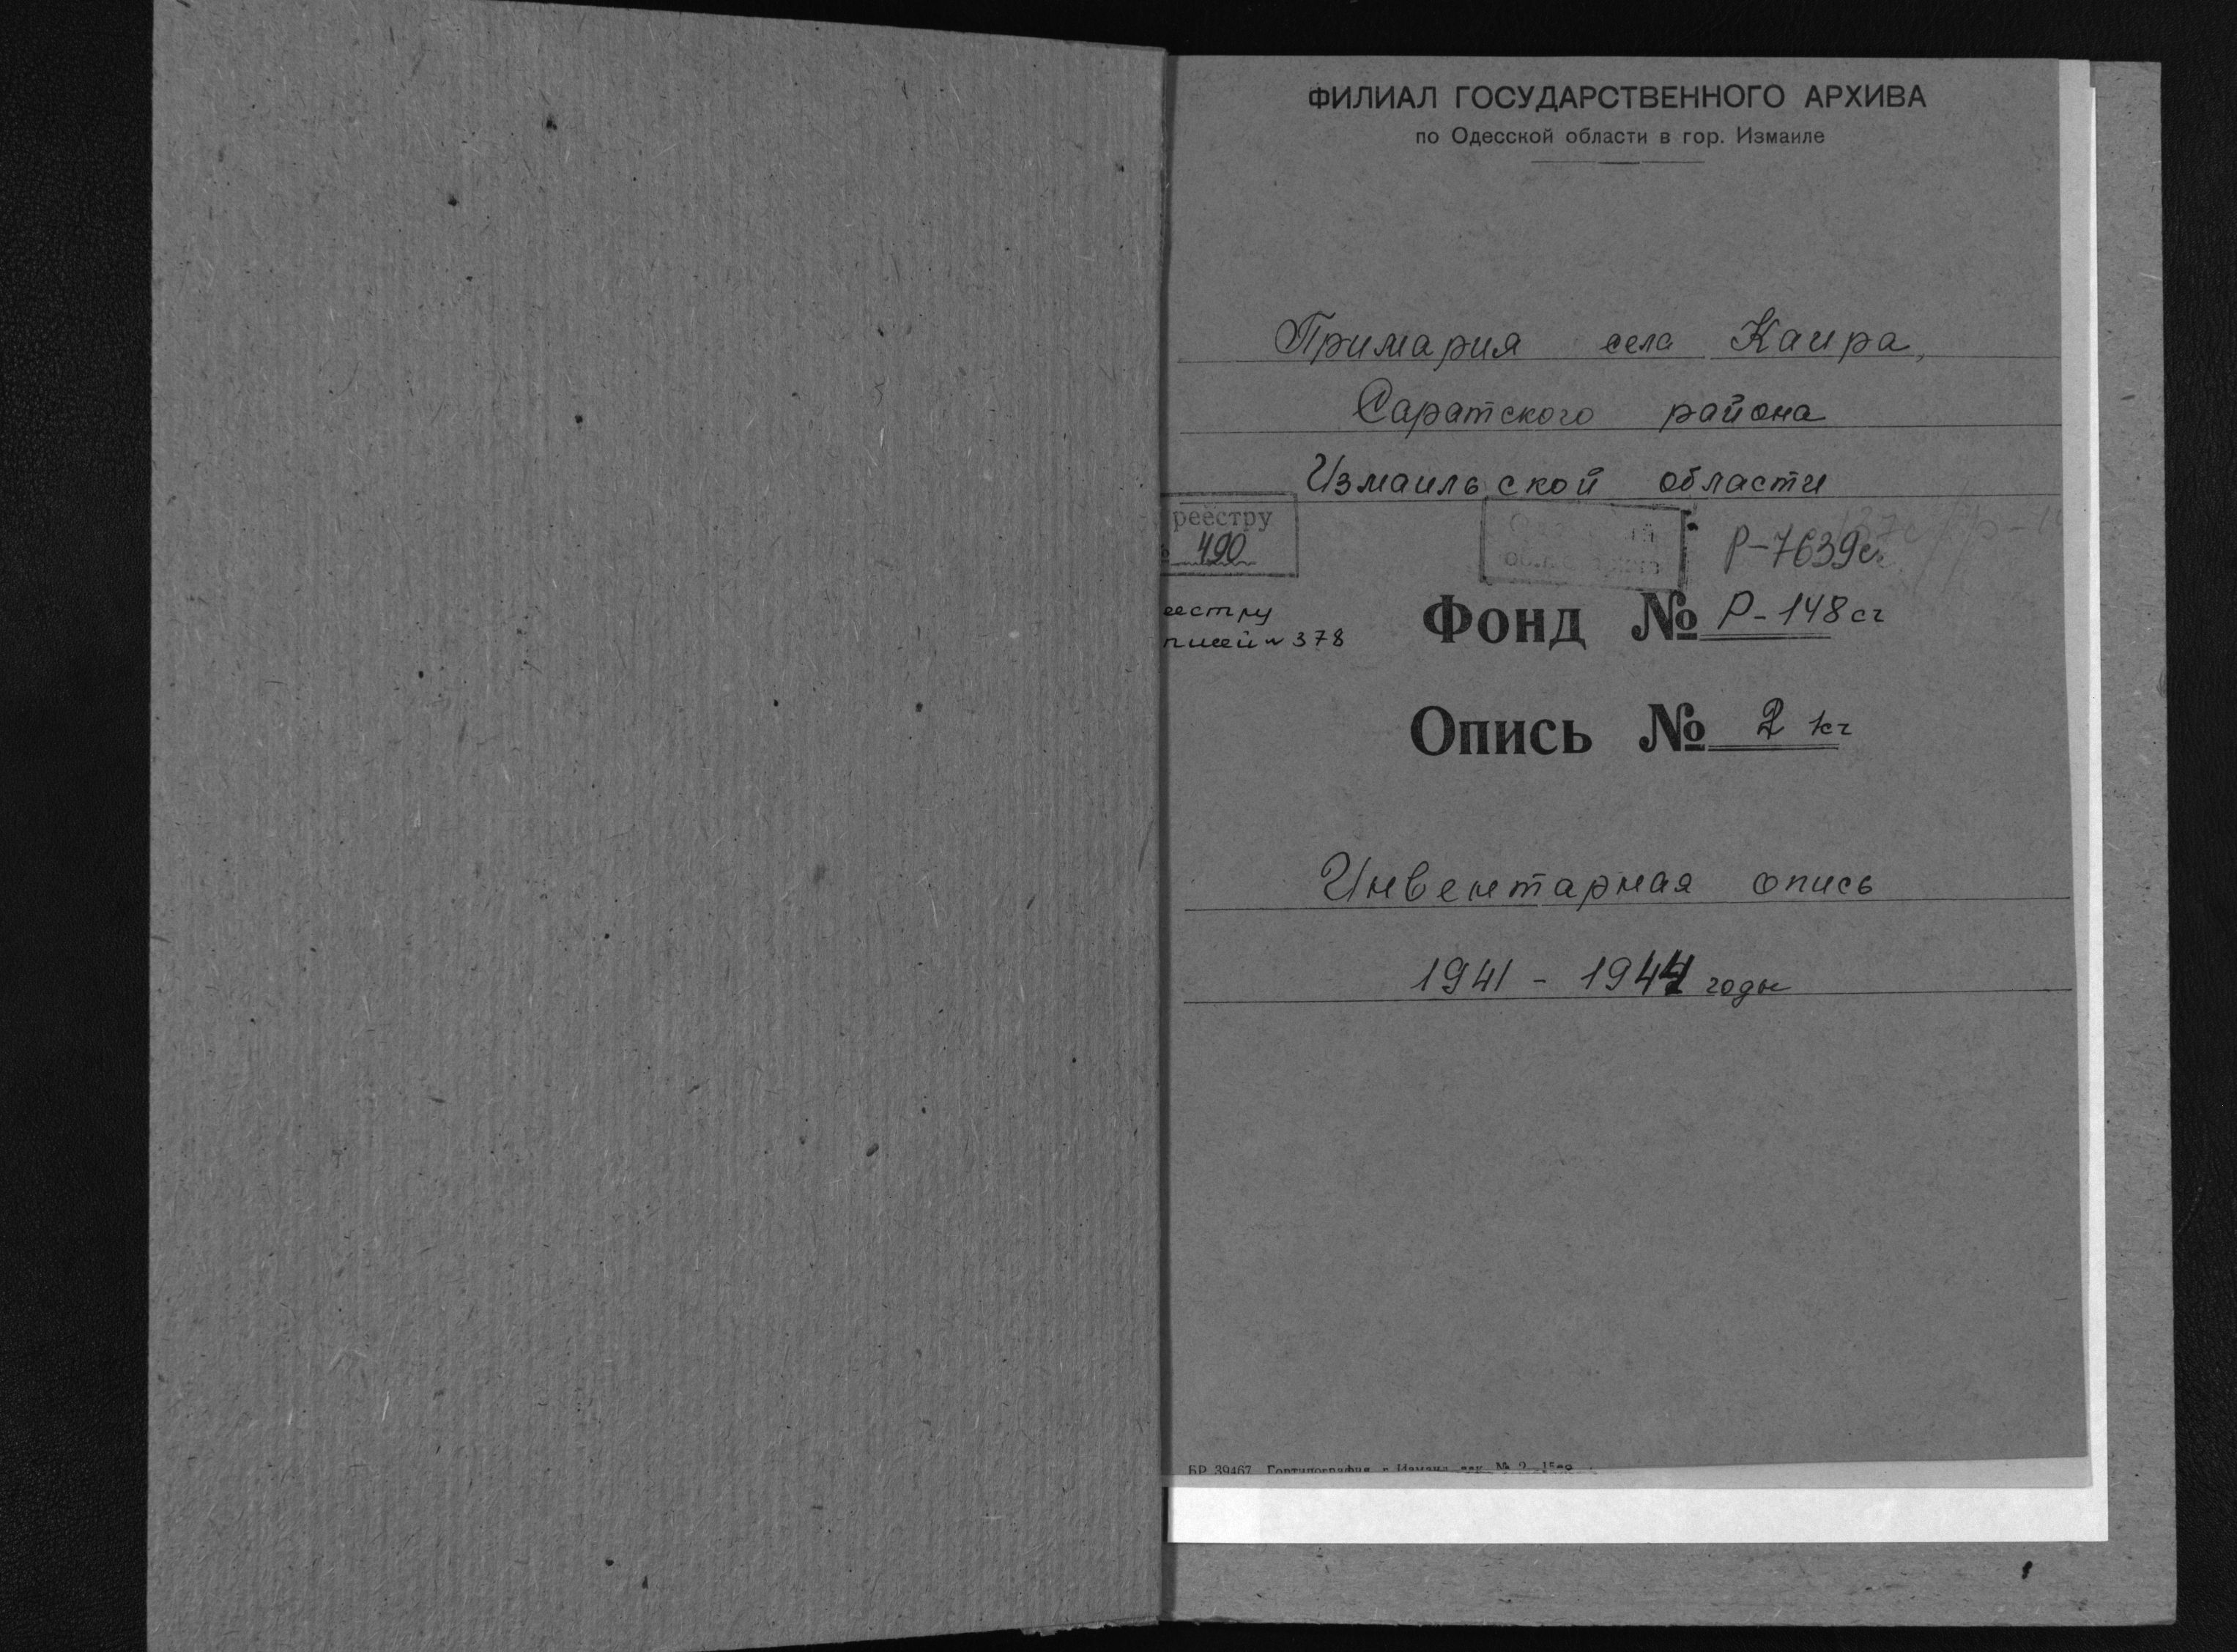 ФИЛИАЛ ГОСУДАРСТВЕННОГО АРХИВА
по Одесской области в гор. Измаиле
Примария села Каира,
Саратского района
Измаильской области
реестру
490
Р-7639с.
еестру
писей № 378
Фонд № Р-148сч
Опись № 2 кч
Инвентарная опись
1941 - 1944 годы
БР 39467